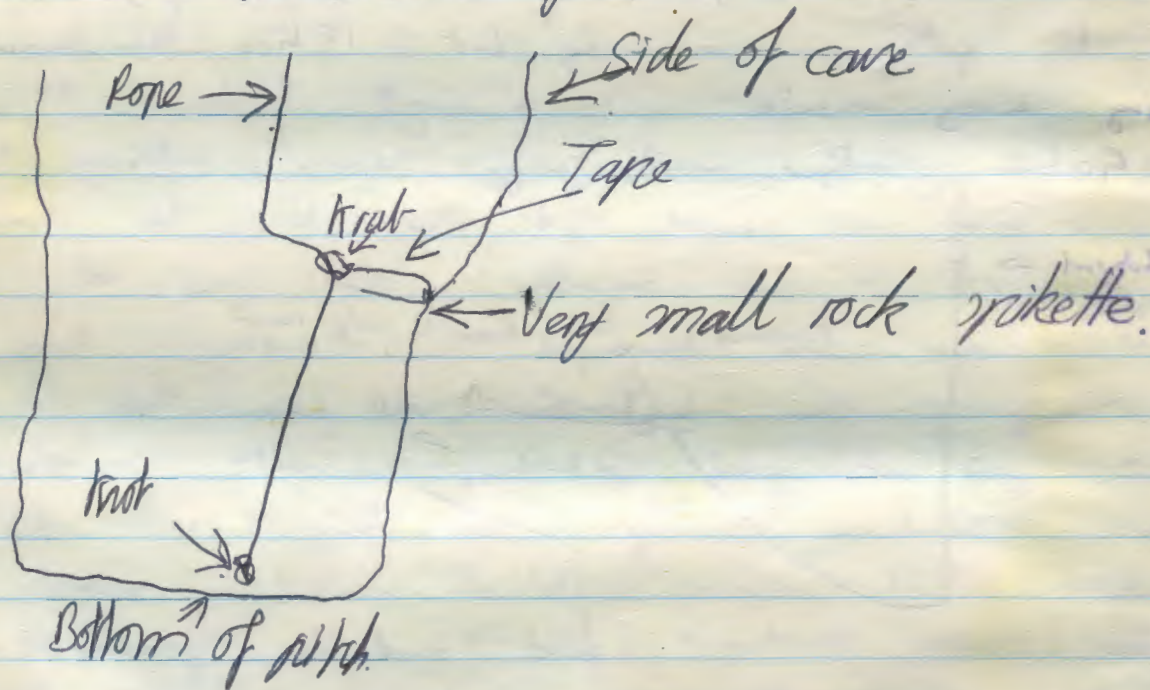 Side of cave
Rope
Tape
Krab
Very small rock spikette.
Knot
Bottom of pitch.